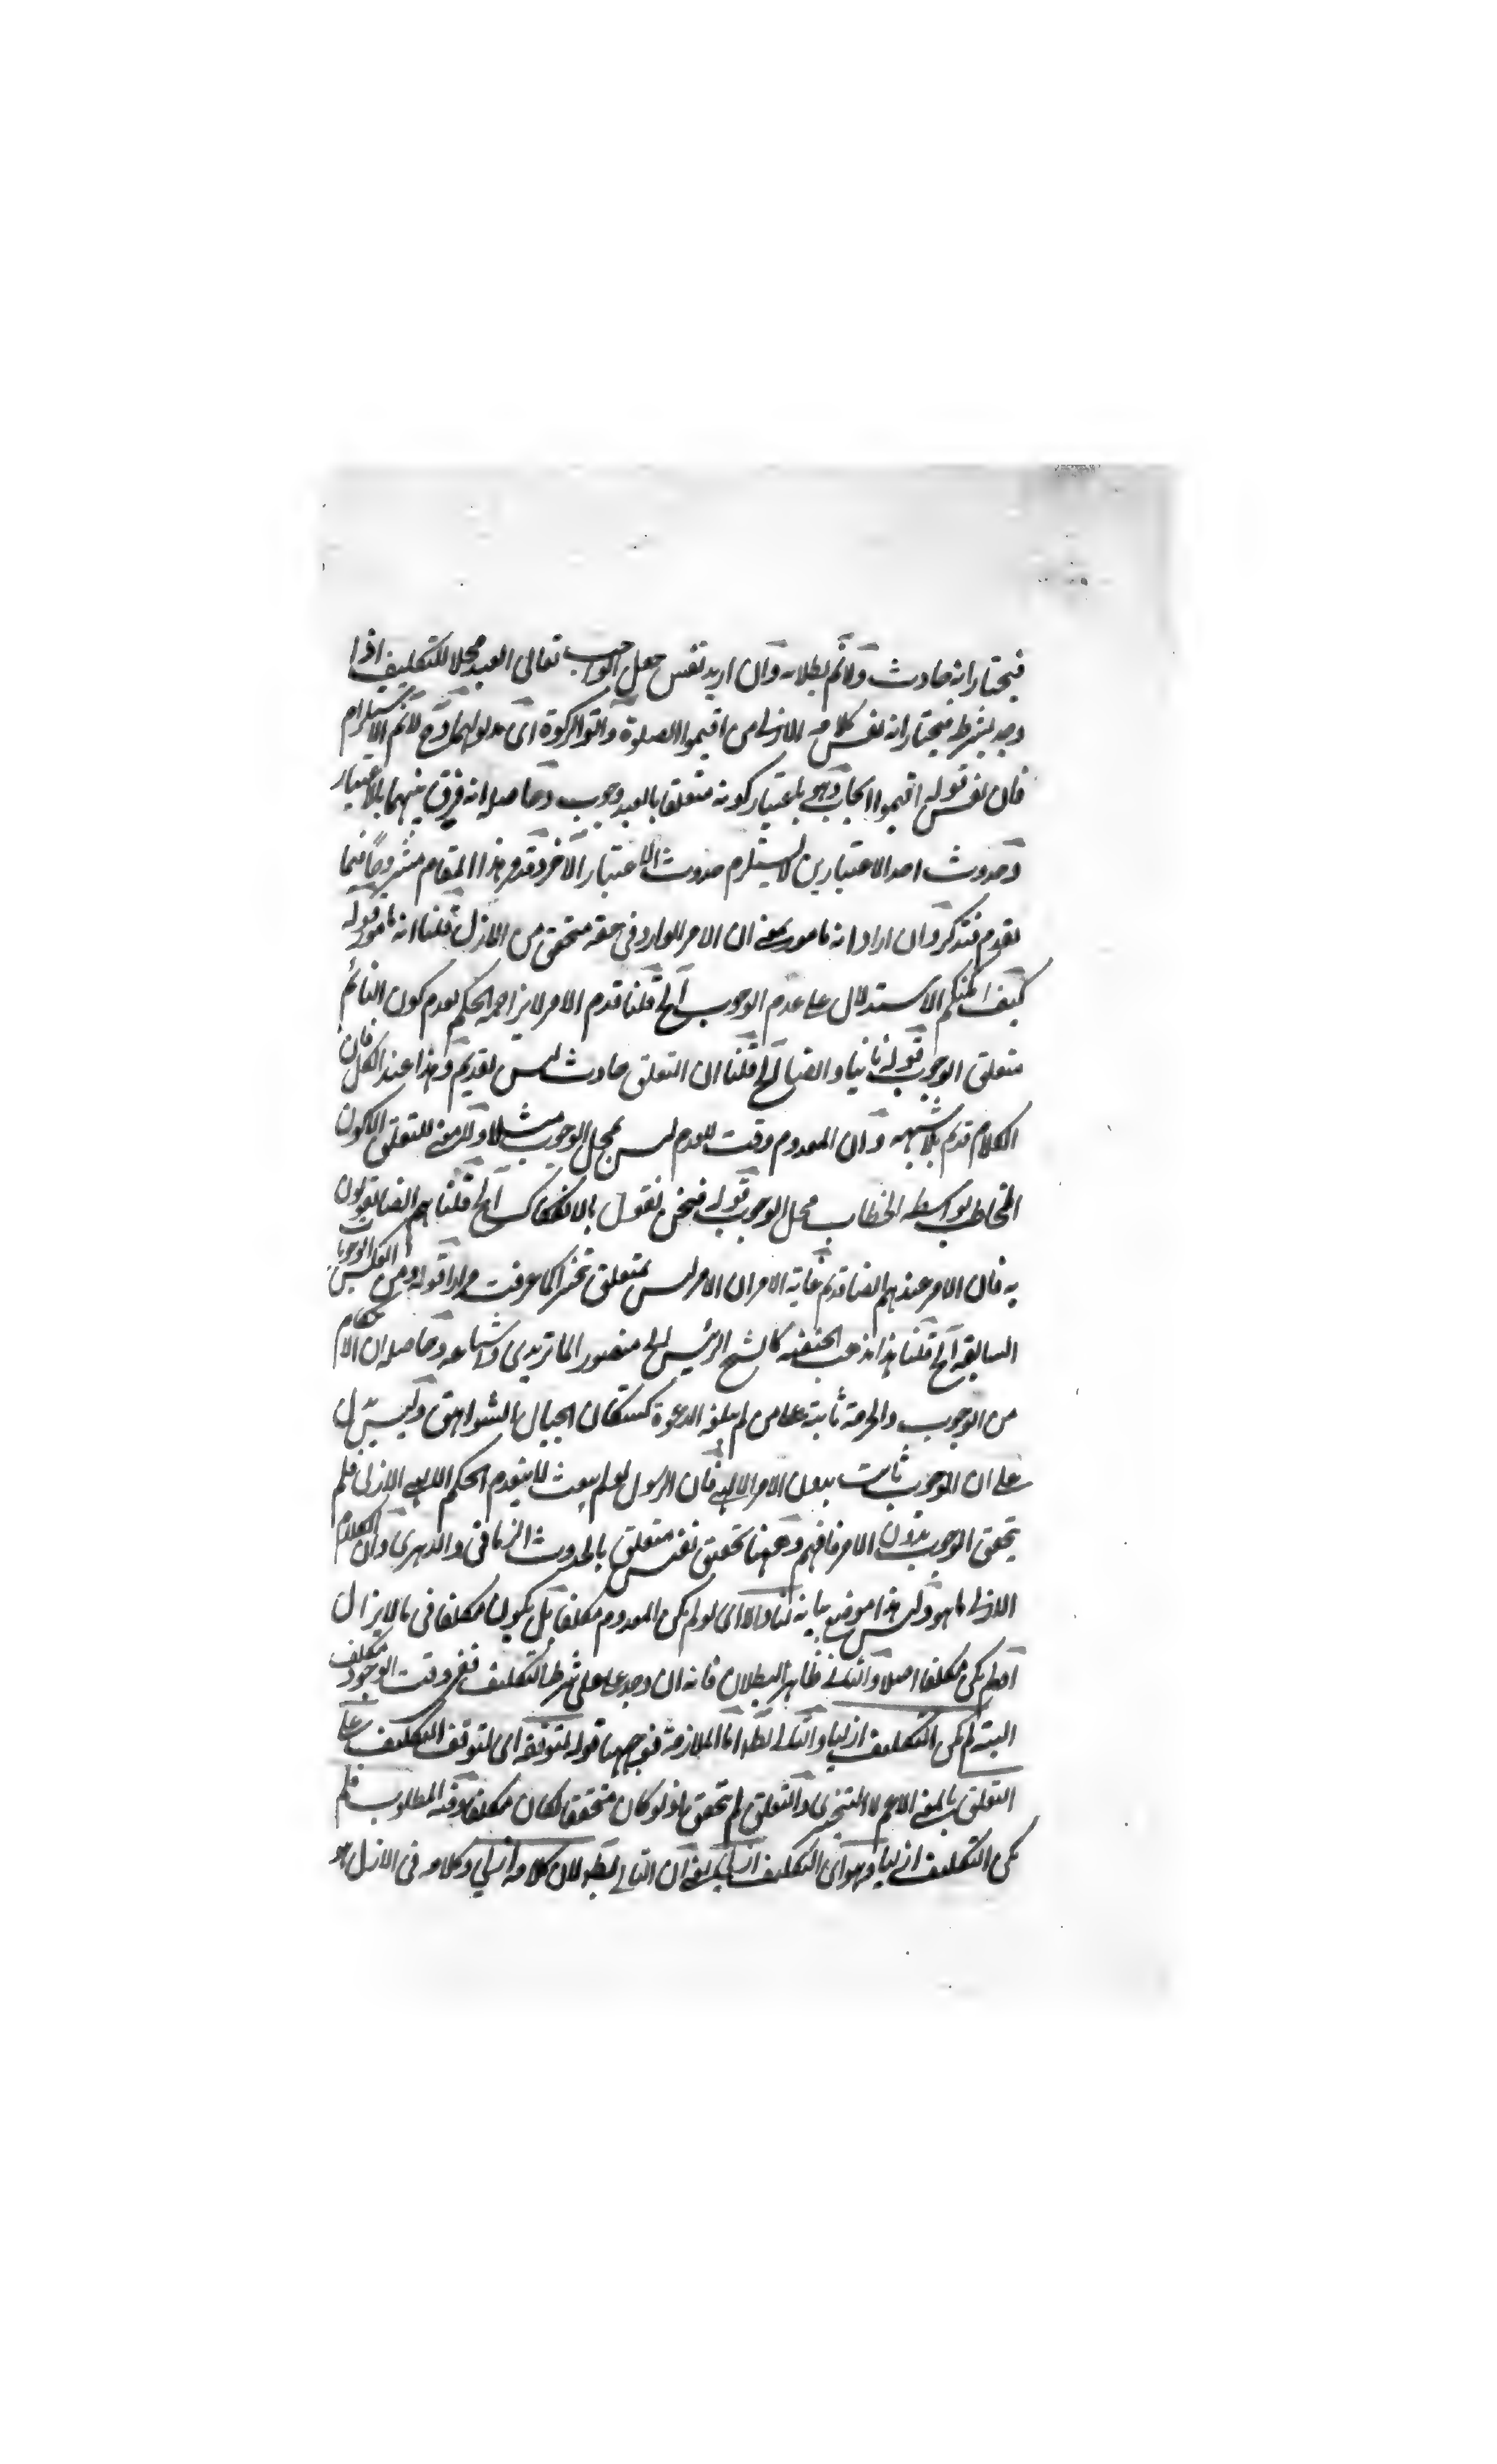 فيختار انه حادث ولانم بطلانه وان اريد نفس جعل الواجب تعالى العبد محلا للتكليف اذا
وجد بشرطه فيختار انه نفس كلامه الازلى من اقيموا الصلوة واتوا الزكوة اى مدلولهما وح لانم الاستلزام
فان نفس قوله اقيموا ايجاب وهى باعتبار كونه متعلقا بالعبد وجوب وحاصله انه فرق بينهما بالاعتبار
وحدوث احد الاعتبارين لا يستلزم حدوث الاعتبار الآخر وقد مر هذا المقام مشروحا فيما
تقدم فتذكر وان اراد انه مامور بمعنى ان الامر الوارد فى حقه متحقق من الازل قلنا انه مامور قوله
كيف امكنكم الاستدلال على عدم الوجوب الخ قلنا قدم الامر لا يزاحمه الحكم بعدم كون النائم
متعلق الوجوب قوله ثانيا وايضا الخ قلنا ان التعلق حادث ليس بقديم وهذا عند الكل فان
الكلام قديم بلا شبهة وان المعدوم وقت العدم ليس بمحل الوجوب مثلا ولا معنى للتعلق الا كون
المخاطب بواسطة الخطاب محل الوجوب قوله فنحن نقول بالانفكاك الخ قلنا هم ايضا يقولون
به فان الامر عندهم ايضا قديم غاية الامر ان الامر ليس بمتعلق تنجيزا كما عرفت مرارا قوله ومن العكس الوجوبات
السابقة الخ قلنا هذا مذهب الحنفية كالشيخ الرئيس ابى منصور الماتريدى واتباعه وحاصله ان الاحكام
من الوجوب والحرمة ثابتة على من لم يبلغه الدعوة كسكان الجبال بالشواهق وليس يدل
على ان الوجوب ثابت بدون الامر الالهى فان الرسول لو لم يبعث لا ينعدم الحكم الالهى الازلى فلم
يتحقق الوجوب بدون الامر فافهم وههنا تحقيق نفيس متعلق بالحدوث الزمانى والدهرى وان الكلام
الازلى ما هو وليس هذا موضع بيانه لنا والا اى لو لم يكن المعدوم مكلفا بل يكون مكلفا فى ما لا يزال
او لم يكن مكلفا اصلا والثانى ظاهر البطلان فانه ان وجد على شرط التكليف ففى وقت الوجود مكلف
البتة لم يكن التكليف ازليا والتالى بط اما الملازمة فوجهها قوله لتوقفه اى لتوقف التكليف على
التعلق بالمعنى الاعم لا التنجيزى والتعلق لم يتحقق اذ لو كان متحققا لكان مكلفا وفيه المطلوب فلم
يكن التكليف ازليا وهو اى التكليف ازلى يعنى ان التالى بط لان كلامه ازلى وكلامه فى الازل هو